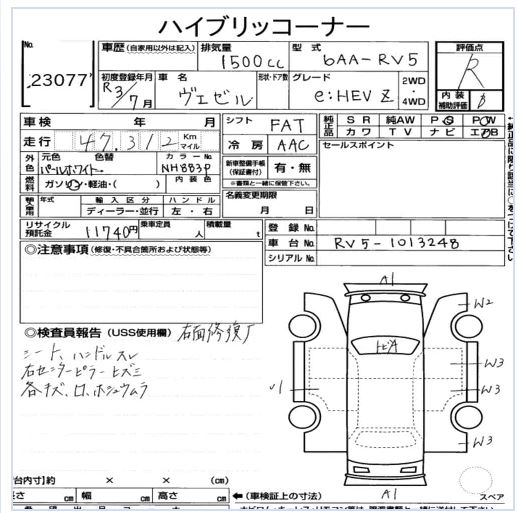 ハイブリッコーナー
No.
23077
車歴 (自家用以外は記入)
排気量
1500cc
型式
6AA-RV5
評価点
R
初度登録年月
R3/7月
車名
ヴェゼル
形状・ドア数
グレード
e:HEV Z
2WD
・
4WD
内装
補助評価
B
車検 年 月
走行 47,312 Km マイル
シフト FAT
冷房 AAC
純正品 SR 純AW PS PW
カワ TV ナビ エアB
セールスポイント
外色 元色 色替 カラーNo.
パールホワイト NH883P
燃料 ガソリン・軽油・( ) 内装色
新車整備手帳
(保証書付)
有・無
※書類と一緒に保管下さい。
輸入車用 年式 輸入区分 ハンドル
ディーラー・並行 左・右
名義変更期限
月 日
リサイクル
預託金
11740円
乗車定員
人
積載量
t
登録No.
車台No. RV5-1013248
シリアルNo.
◎注意事項 (修復・不具合箇所および状態等)
◎検査員報告 (USS使用欄) 右面修復歴
シート、ハンドルスレ
右センターピラーヒズミ
各キズ、凹、ホシュウムラ
A1
トビA
W2
W3
W3
W3
A1
スペア
台内寸)約 × × (cm)
長さ cm 幅 cm 高さ cm
←(車検証上の寸法)